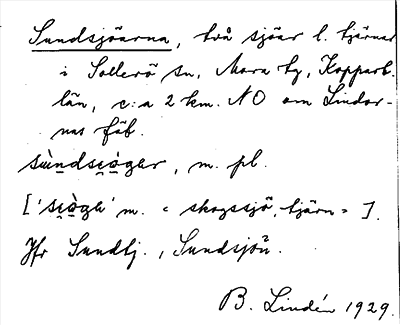 Sundsjöarna, två sjöar l. tjärnar
i Sollerö sn, Mora tg, Kopparb.
län, c:a 2 km. NO om Lindor-
nas fäb.
sùndsi̯ògar, m. pl.
['si̯ògɐ' m. « skogssjö, tjärn »].
Jfr Sundtj., Sundsjön.
B. Lindén 1929.